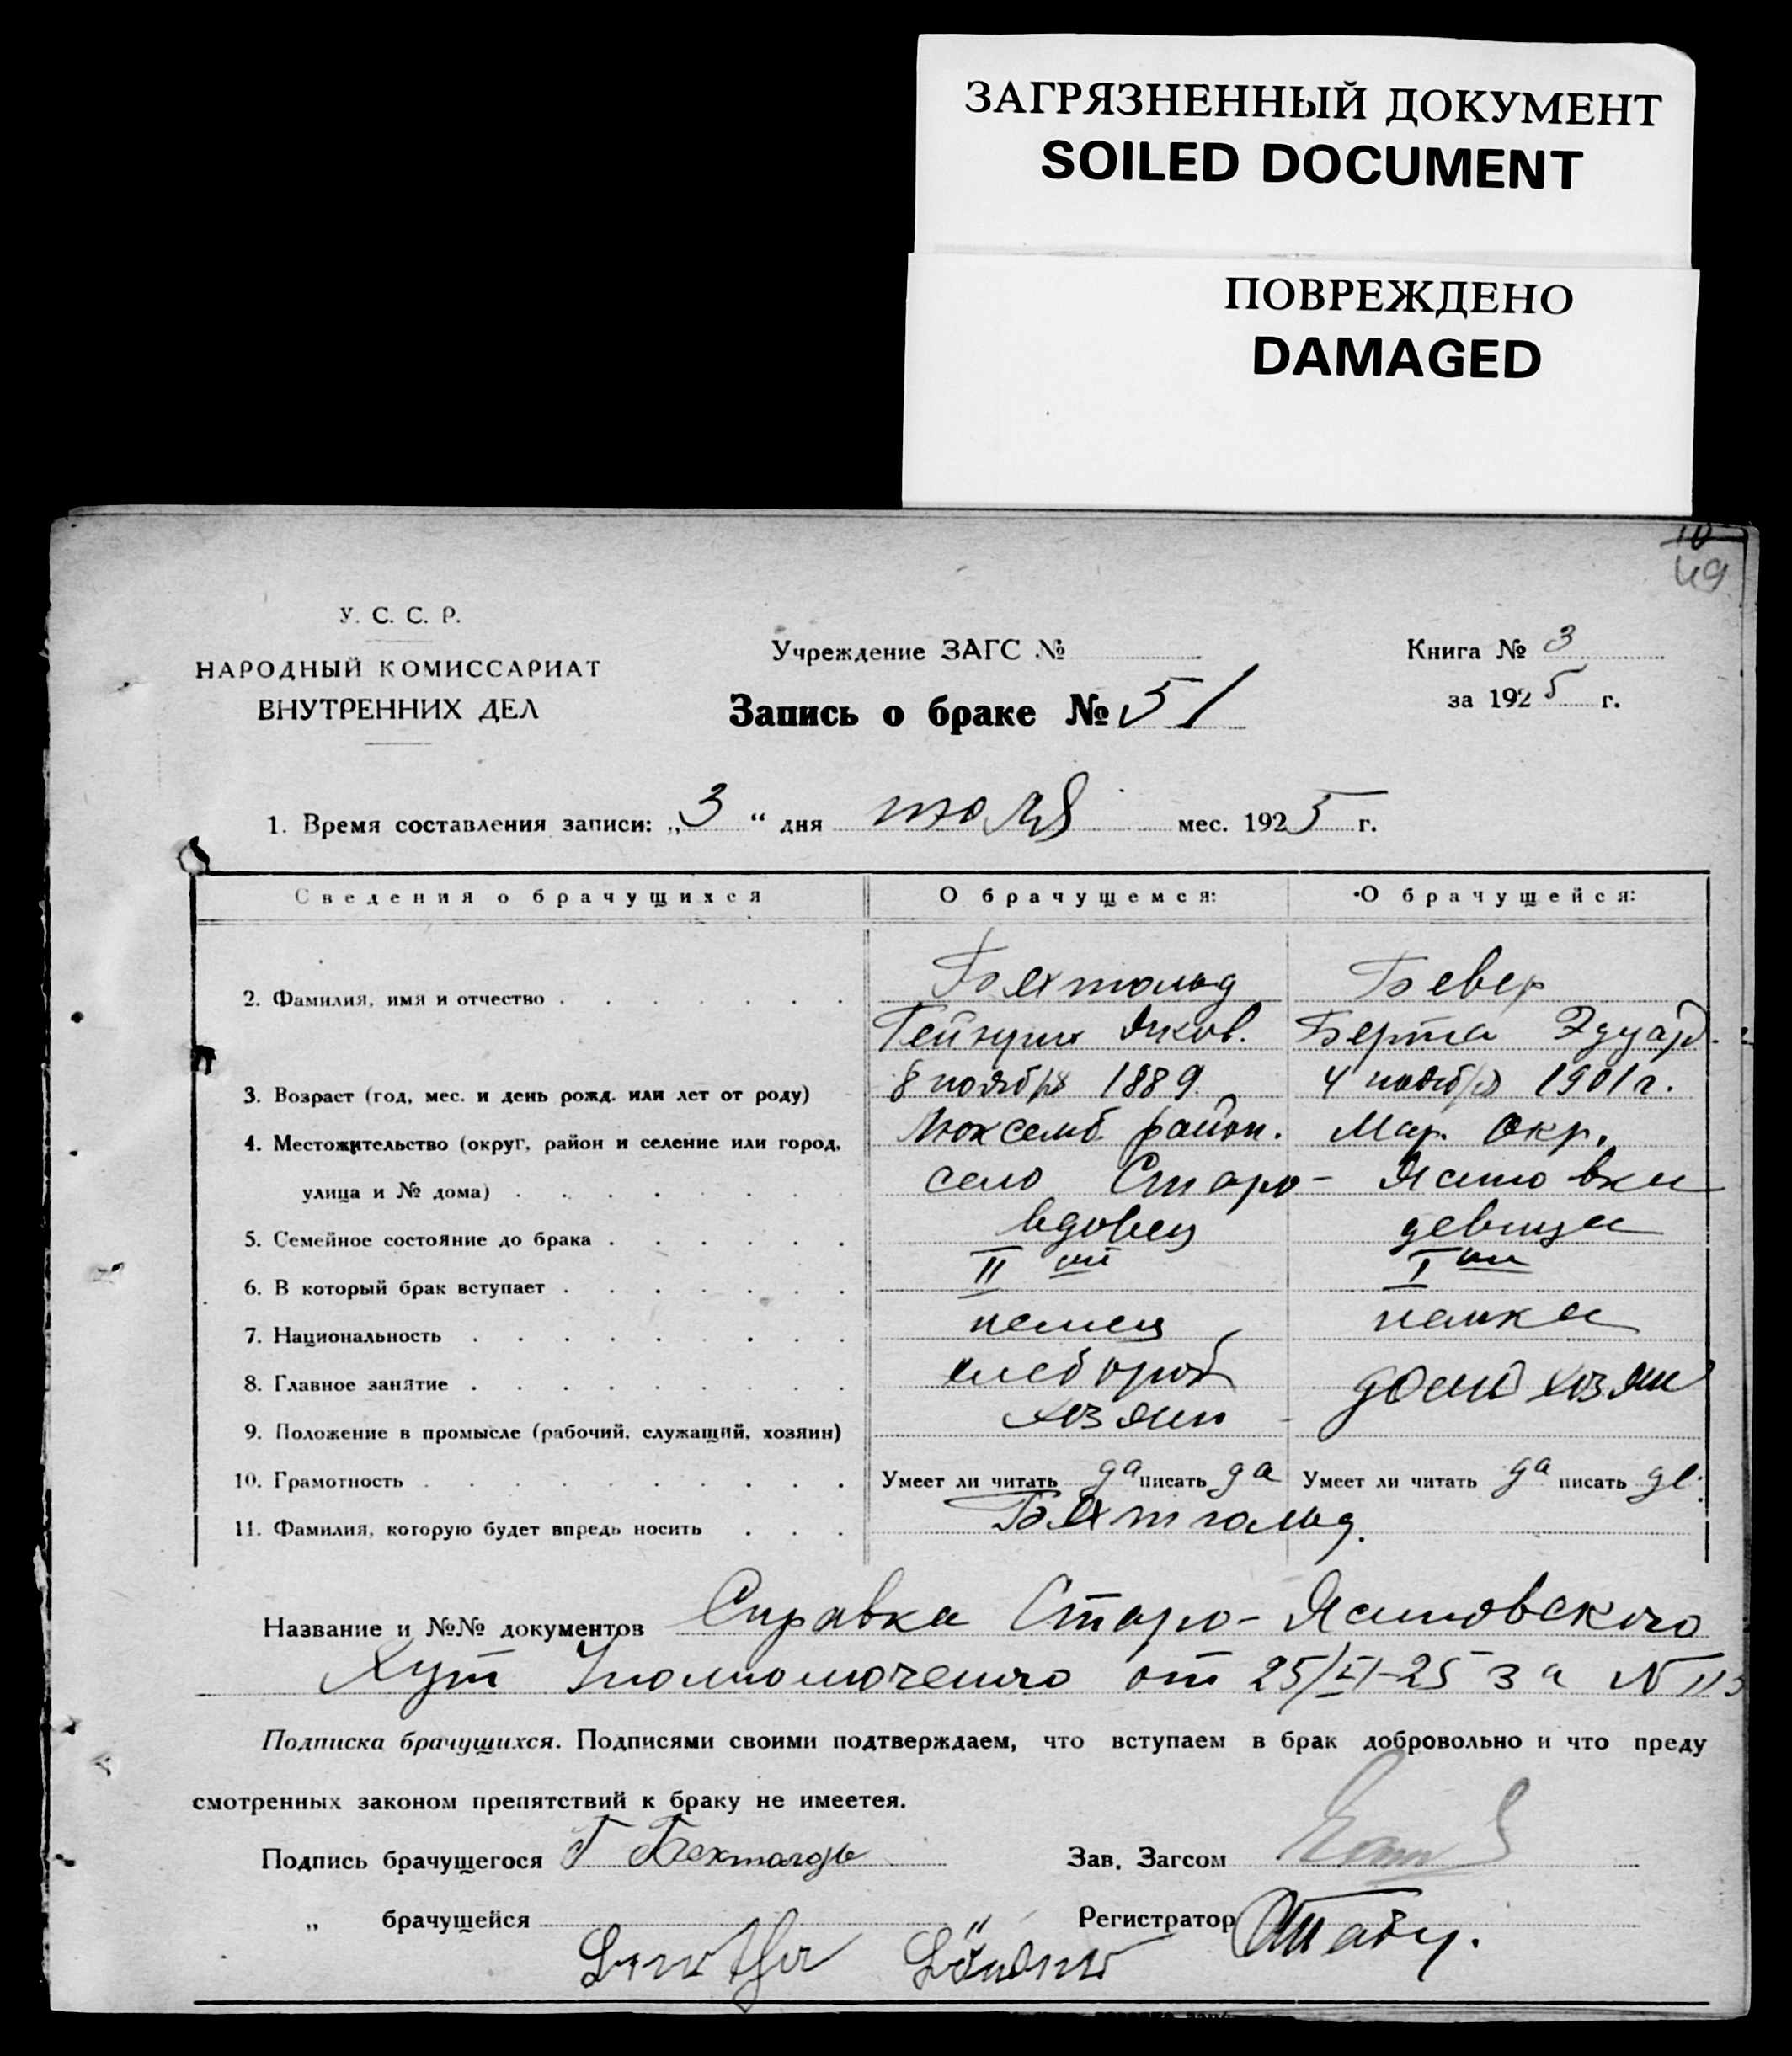 ЗАГРЯЗНЕННЫЙ ДОКУМЕНТ
SOILED DOCUMENT
ПОВРЕЖДЕНО
DAMAGED
10
49
У. С. С. Р.
НАРОДНЫЙ КОМИССАРИАТ
ВНУТРЕННИХ ДЕЛ
Учреждение ЗАГС №
Запись о браке № 51
Книга № 3
за 1925 г.
1. Время составления записи: „3“ дня июля мес. 1925 г.
Сведения о брачущихся О брачущемся: О брачущейся:
2. Фамилия, имя и отчество Бехтольд Бевер
Гейнрих Яков. Берта Эдуард.
3. Возраст (год, мес. и день рожд. или лет от роду) 8 ноября 1889 4 ноября 1901 г.
4. Местожительство (округ, район и селение или город, Люксемб. район. Мар. Окр.
улица и № дома) село Старо- Ясиновки
5. Семейное состояние до брака вдовец девица
6. В который брак вступает II ий I ый
7. Национальность немец немка
8. Главное занятие хлебороб дом хозяй
9. Положение в промысле (рабочий, служащий, хозяин) хозяин
10. Грамотность Умеет ли читать да писать да Умеет ли читать да писать да
11. Фамилия, которую будет впредь носить Бехтгольд.
Название и №№ документов Справка Старо-Ясиновского
Хут Уполномоченного от 25/VI-25 за N 113
Подписка брачущихся. Подписями своими подтверждаем, что вступаем в брак добровольно и что преду
смотренных законом препятствий к браку не имеетея.
Подпись брачущегося Г Бехтольд Зав. Загсом
„ брачущейся Регистратор